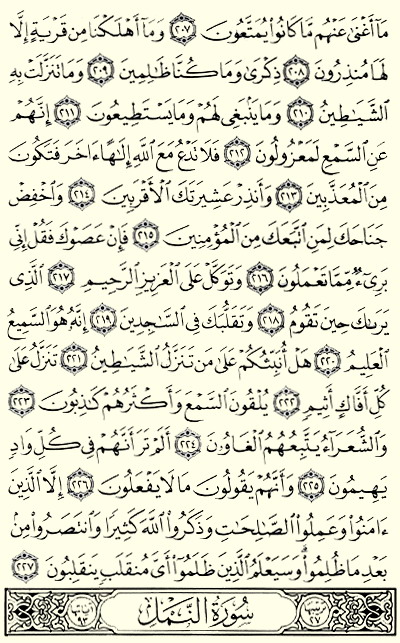 مَآ أَغْنَىٰ عَنْهُم مَّا كَانُوا۟ يُمَتَّعُونَ ٢٠٧ وَمَآ أَهْلَكْنَا مِن قَرْيَةٍ إِلَّا
لَهَا مُنذِرُونَ ٢٠٨ ذِكْرَىٰ وَمَا كُنَّا ظَـٰلِمِينَ ٢٠٩ وَمَا تَنَزَّلَتْ بِهِ
ٱلشَّيَـٰطِينُ ٢١٠ وَمَا يَنۢبَغِى لَهُمْ وَمَا يَسْتَطِيعُونَ ٢١١ إِنَّهُمْ
عَنِ ٱلسَّمْعِ لَمَعْزُولُونَ ٢١٢ فَلَا تَدْعُ مَعَ ٱللَّهِ إِلَـٰهًا ءَاخَرَ فَتَكُونَ
مِنَ ٱلْمُعَذَّبِينَ ٢١٣ وَأَنذِرْ عَشِيرَتَكَ ٱلْأَقْرَبِينَ ٢١٤ وَٱخْفِضْ
جَنَاحَكَ لِمَنِ ٱتَّبَعَكَ مِنَ ٱلْمُؤْمِنِينَ ٢١٥ فَإِنْ عَصَوْكَ فَقُلْ إِنِّى
بَرِىٓءٌ مِّمَّا تَعْمَلُونَ ٢١٦ وَتَوَكَّلْ عَلَى ٱلْعَزِيزِ ٱلرَّحِيمِ ٢١٧ ٱلَّذِى
يَرَىٰكَ حِينَ تَقُومُ ٢١٨ وَتَقَلُّبَكَ فِى ٱلسَّـٰجِدِينَ ٢١٩ إِنَّهُۥ هُوَ ٱلسَّمِيعُ
ٱلْعَلِيمُ ٢٢٠ هَلْ أُنَبِّئُكُمْ عَلَىٰ مَن تَنَزَّلُ ٱلشَّيَـٰطِينُ ٢٢١ تَنَزَّلُ عَلَىٰ
كُلِّ أَفَّاكٍ أَثِيمٍ ٢٢٢ يُلْقُونَ ٱلسَّمْعَ وَأَكْثَرُهُمْ كَـٰذِبُونَ ٢٢٣
وَٱلشُّعَرَآءُ يَتَّبِعُهُمُ ٱلْغَاوُۥنَ ٢٢٤ أَلَمْ تَرَ أَنَّهُمْ فِى كُلِّ وَادٍ
يَهِيمُونَ ٢٢٥ وَأَنَّهُمْ يَقُولُونَ مَا لَا يَفْعَلُونَ ٢٢٦ إِلَّا ٱلَّذِينَ
ءَامَنُوا۟ وَعَمِلُوا۟ ٱلصَّـٰلِحَـٰتِ وَذَكَرُوا۟ ٱللَّهَ كَثِيرًا وَٱنتَصَرُوا۟ مِنۢ
بَعْدِ مَا ظُلِمُوا۟ وَسَيَعْلَمُ ٱلَّذِينَ ظَلَمُوٓا۟ أَىَّ مُنقَلَبٍ يَنقَلِبُونَ ٢٢٧
ترتيبها ٢٧ سُورَةُ النَّمْلِ آياتها ٩٣